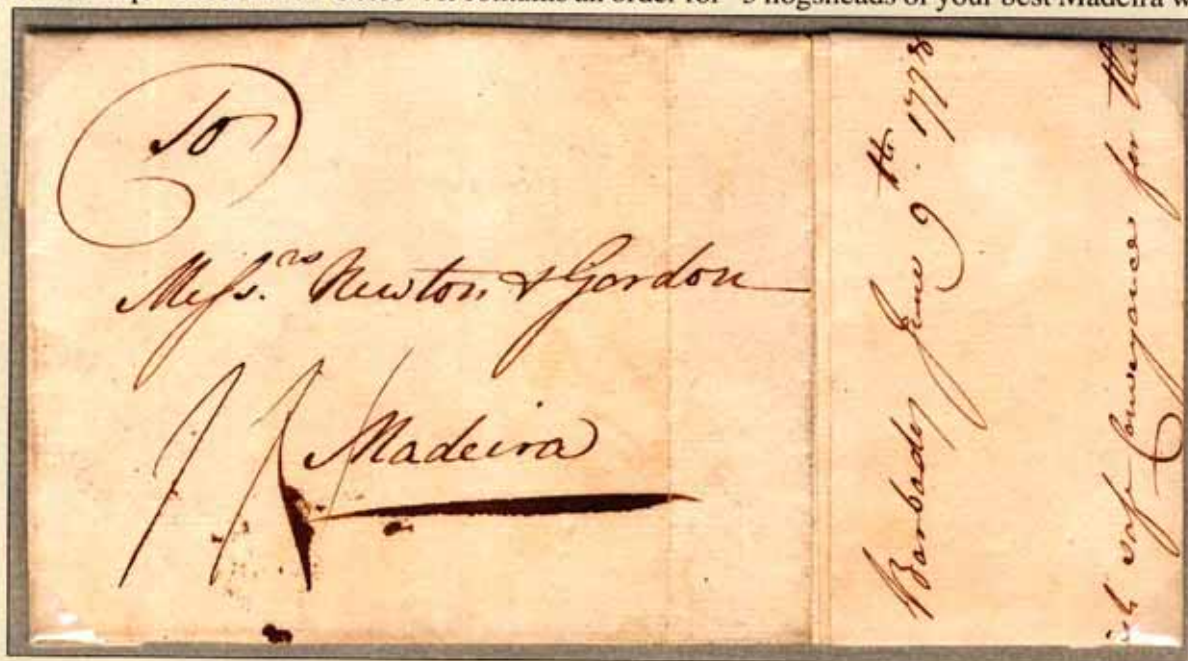 contains an order for "3 hogsheads of your best Madeira w
To
Mess.rs Newton & Gordon
Madeira
Barbados June 9th. 1778
safe conveyance for this